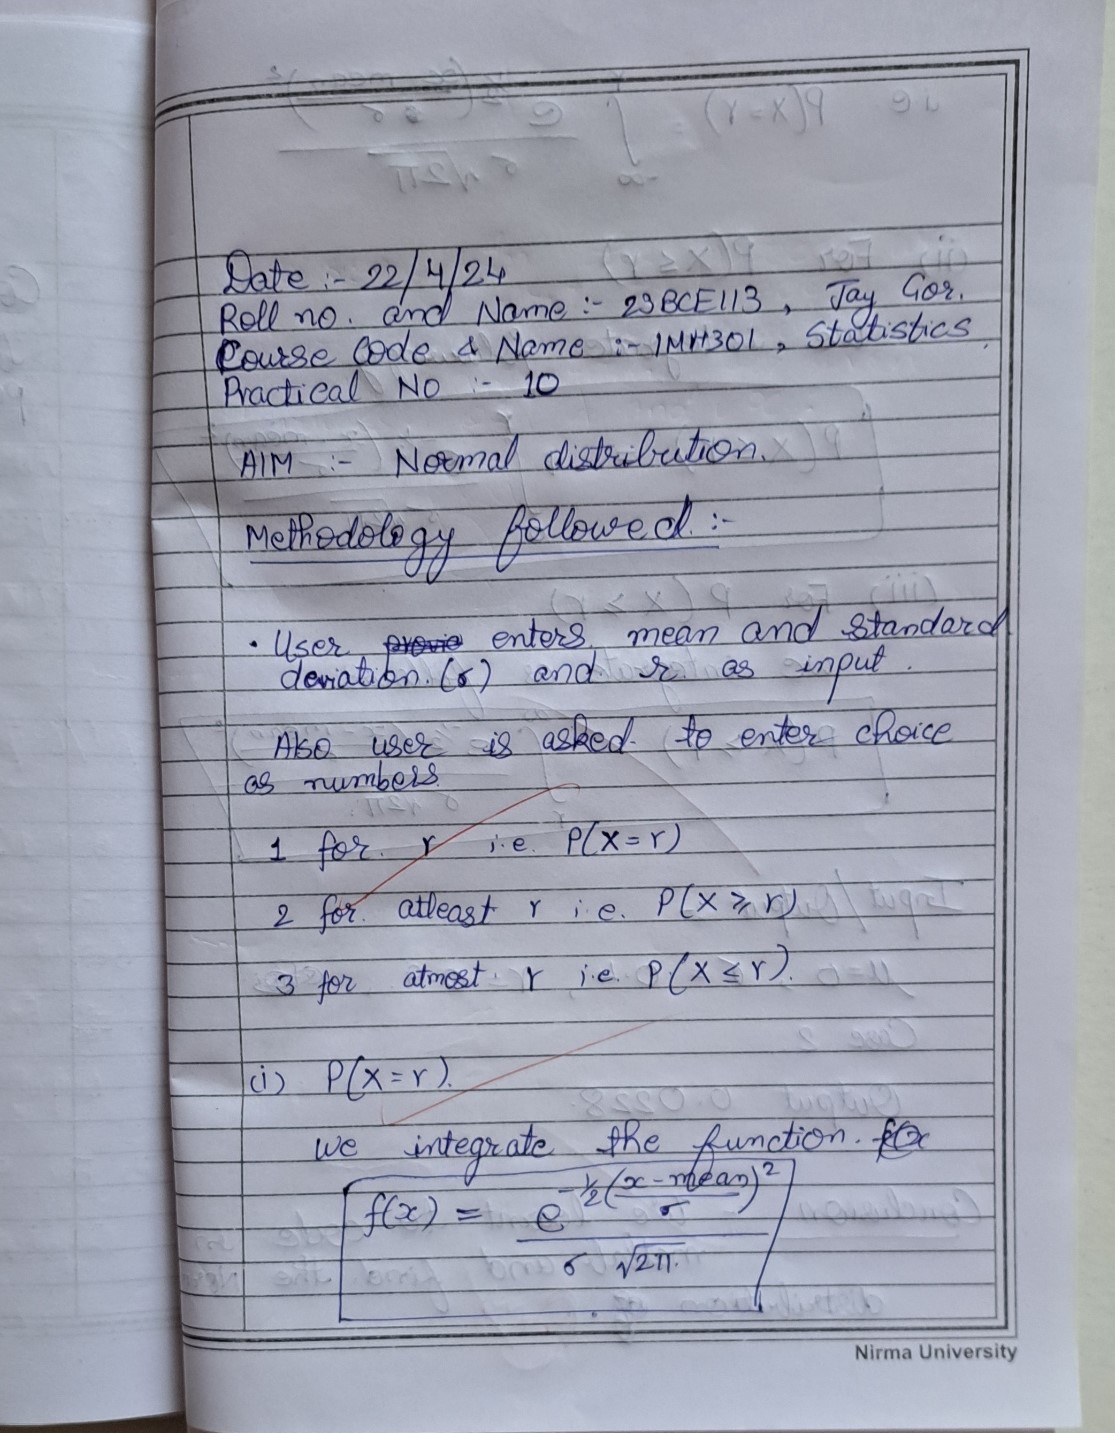 Date :- 22/4/24
Roll no. and Name :- 23BCE113, Jay Gor.
Course Code & Name :- 1MH301, Statistics
Practical No :- 10
AIM :- Normal distribution.
Methodology followed :-
• User enters mean and standard
deviation (σ) and r as input.
Also user is asked to enter choice
as numbers
1 for r i.e. P(X=r)
2 for atleast r i.e. P(X ≥ r)
3 for atmost r i.e. P(X ≤ r).
(i) P(X=r).
we integrate the function.
f(x) = e^{-1/2((x-mean)/σ)^2} / (σ √2π)
Nirma University